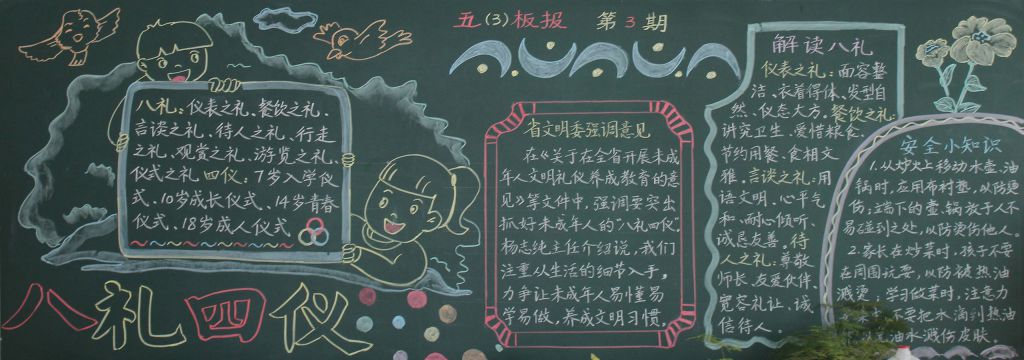 五(3)板报 第3期
八礼:仪表之礼、餐饮之礼、
言谈之礼、待人之礼、行走
之礼、观赏之礼、游览之礼、
仪式之礼 四仪:7岁入学仪
式、10岁成长仪式、14岁青春
仪式、18岁成人仪式
八礼四仪
省文明委强调意见
在《关于在全省开展未成
年人文明礼仪养成教育的意
见》等文件中,强调要突出
抓好未成年人的"八礼四仪"。
杨志纯主任介绍说,我们
注重从生活的细节入手,
力争让未成年人易懂易
学易做,养成文明习惯。
解读八礼
仪表之礼:面容整
洁、衣着得体、发型自
然、仪态大方。餐饮之礼:
讲究卫生、爱惜粮食、
节约用餐、食相文
雅。言谈之礼:用
语文明、心平气
和、耐心倾听、
诚恳友善。待
人之礼:尊敬
师长、友爱伙伴、
宽容礼让、诚
信待人。
安全小知识
1.从炉火上移动水壶、油
锅时,应用布衬垫,以防烫
伤;端下的壶、锅放于人不
易碰到之处,以防烫伤他人。
2.家长在炒菜时,孩子不要
在周围玩耍,以防被热油
溅烫。学习做菜时,注意力
不要把水滴到热油
油水溅伤皮肤。